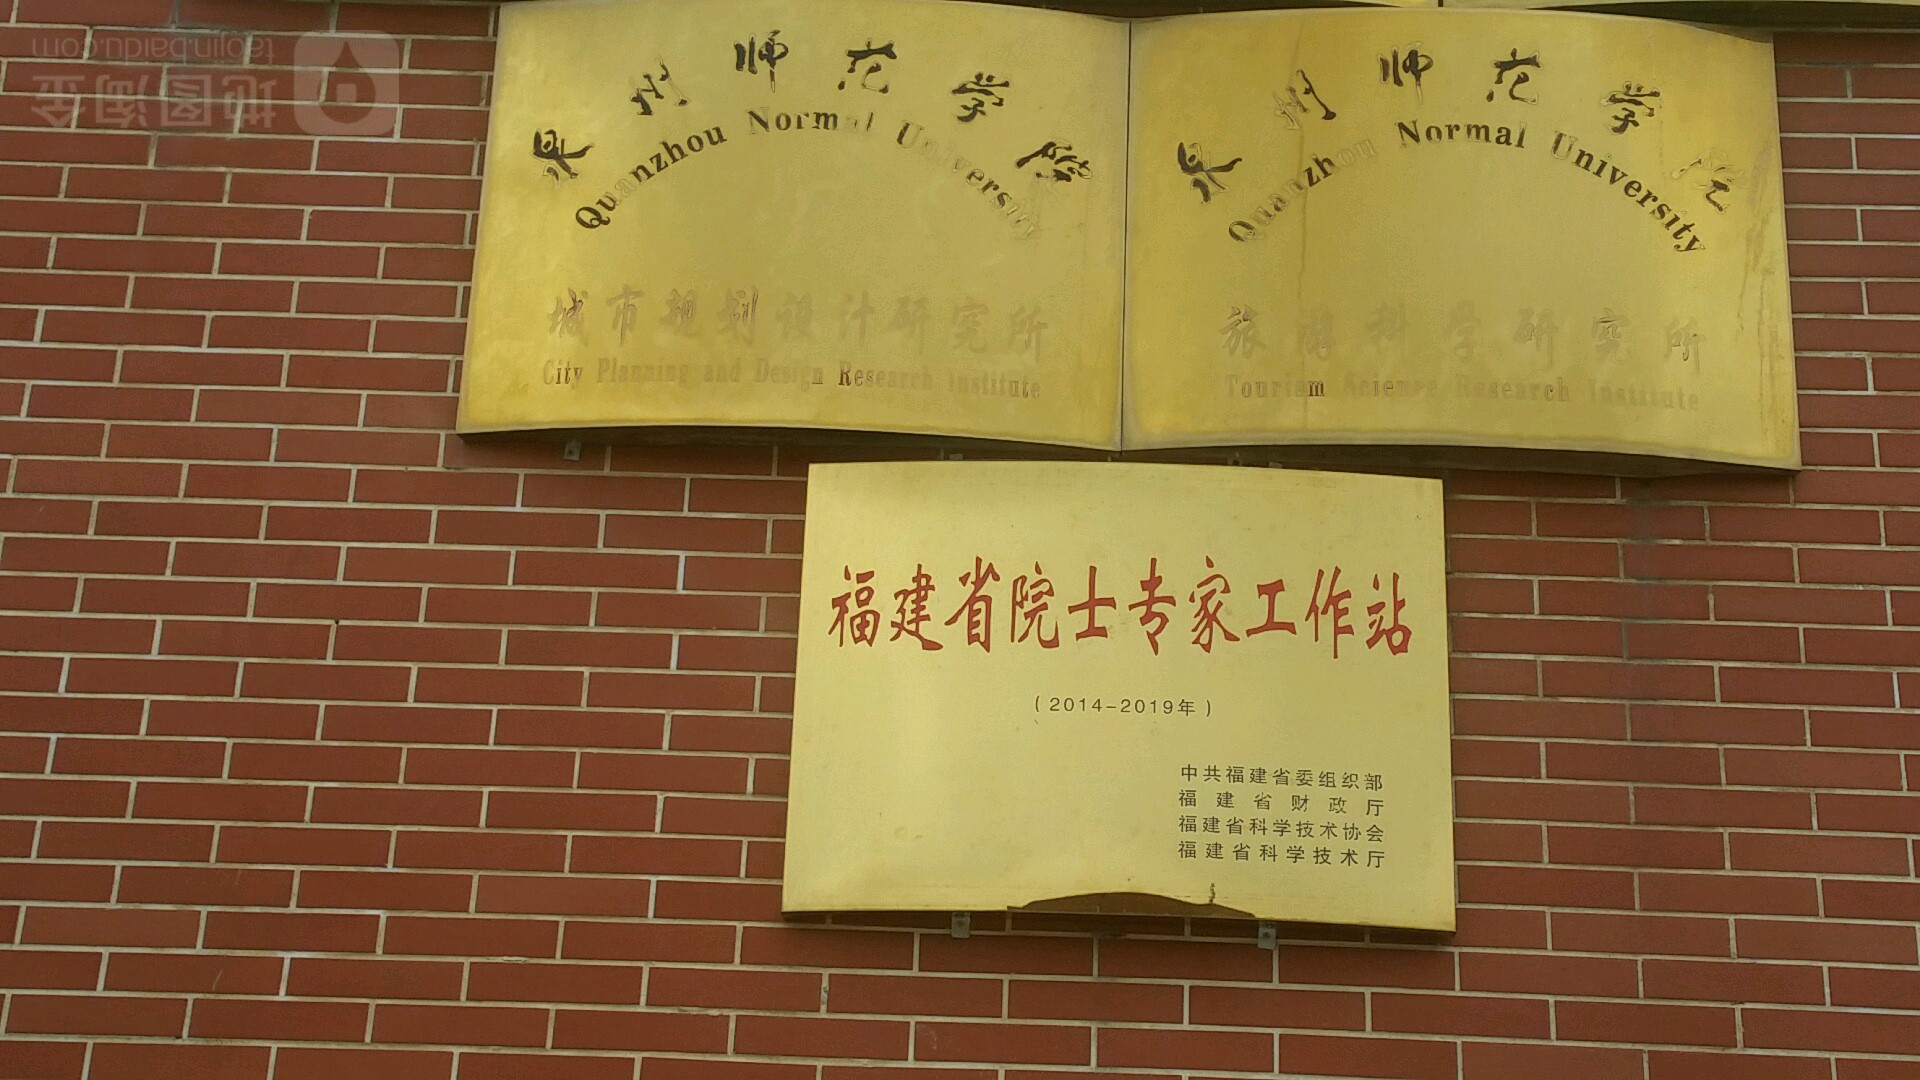 泉州师范学院
Quanzhou Normal University
城市规划设计研究所
City Planning and Design Research Institute
泉州师范学院
Quanzhou Normal University
旅游科学研究所
Tourism Science Research Institute
福建省院士专家工作站
(2014-2019年)
中共福建省委组织部
福建省财政厅
福建省科学技术协会
福建省科学技术厅
地图淘金
taojin.baidu.com